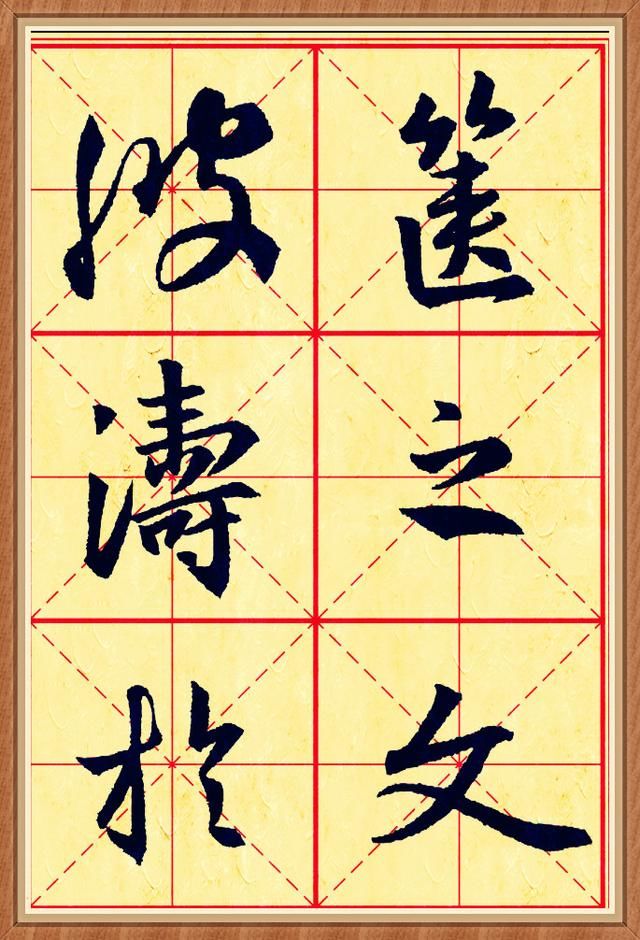 篋之文
波濤於